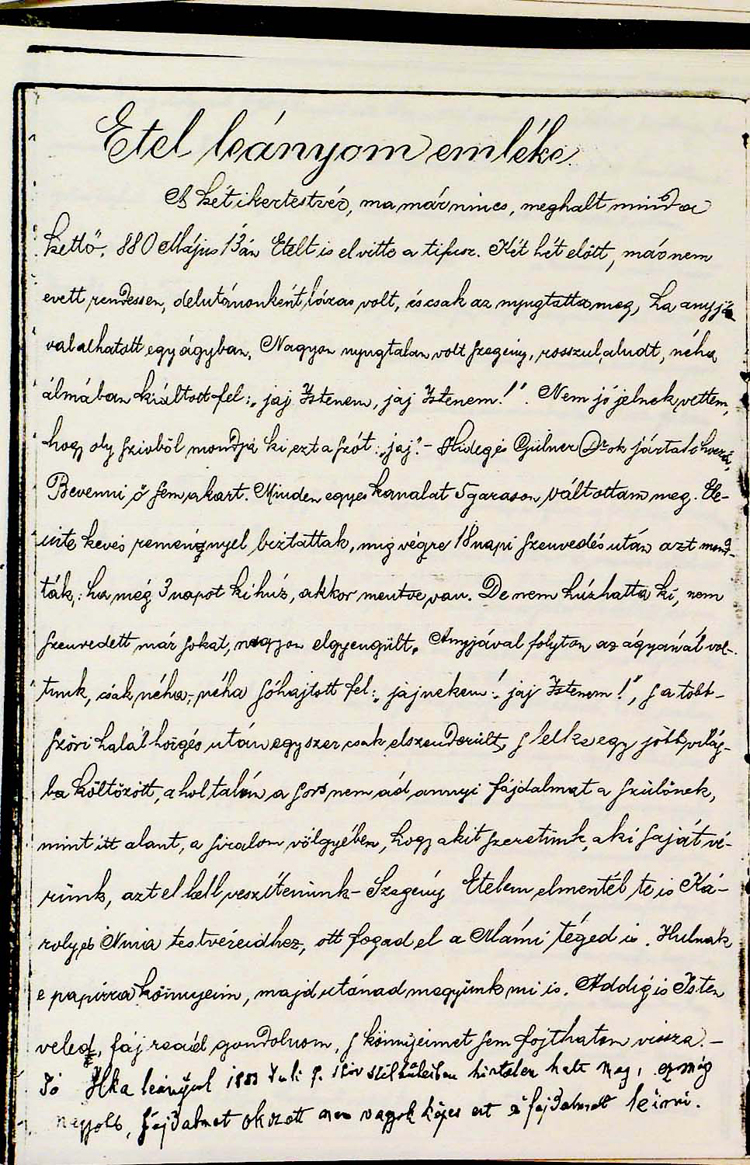 Etel leányom emléke
A két ikertestvér, ma már nincs, meghalt mind a
kettő. 880 Május 13án Etelt is elvitte a tifusz. Két hét előtt, már nem
evett rendessen, delutánonként lázas volt, és csak az nyugtatta meg, ha anyjá
val alhatott egy ágyban, Nagyon nyugtalan volt szegény, rosszul aludt, néha
álmában kiáltott fel: „jaj Istenem, jaj Istenem!". Nem jó jelnek vettem,
hogy oly szivből mondja ki ezt a szót: „jaj". - Hideg és Gülner Dr ok jártak hozzá,
Bevenni ő sem akart. Minden egyes kanalat 5 garason váltottam meg. Ele-
inte kevés reménnyel biztattak, mig végre 18 napi szenvedés után azt mond-
ták: ha még 3 napot kihúz, akkor mentve van. De nem húzhatta ki, nem
szenvedett már sokat, nagyon elgyengült. Anyjával folyton az ágyánál vol-
tunk, csak néha-néha sóhajtott fel: „jaj nekem! jaj Istenem!", s a több-
szöri halálhörgés után egyszer csak elszenderült, s lelke egy jobb világ-
ba költözött, ahol talán a sors nem ád annyi fájdalmat a szülőnek,
mint itt alant, a siralom völgyében, hogy akit szeretünk, aki saját vé-
rünk, azt el kell veszítenünk - Szegény Etelem elmentél te is Ká-
roly és Nina testvéreidhez, ott fogad el a Mámi téged is. Hulnak
e papirra könnyeim, majd utánad megyünk mi is. Addig is Isten
veled, fáj reád gondolnom, s könnyeimet sem fojthatom vissza. -
Jó Ilka leányul Juli hirtelen halt meg, ez még
nagyobb fájdalmat okozott nem vagyok képes ezt a fájdalmat leirni.